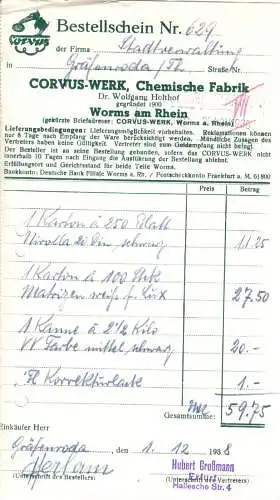 CORVUS
Bestellschein Nr. 629
der Firma Stadtverwaltung
in Gräfenroda /Th. Straße/Nr.
CORVUS-WERK, Chemische Fabrik
Dr. Wolfgang Holthof
gegründet 1900
Worms am Rhein
(gekürzte Briefadresse: CORVUS-WERK, Worms a. Rhein)
Lieferungsbedingungen: Lieferungsmöglichkeit vorbehalten. Reklamationen können
nur 8 Tage nach Empfang der Ware berücksichtigt werden. Mündliche Zusagen des
Vertreters haben keine Gültigkeit. Vertreter sind zum Geldempfang nicht befugt.
Der Besteller ist an seine Bestellung gebunden, sofern das CORVUS-WERK nicht
innerhalb 10 Tagen nach Eingang die Ausführung der Bestellung ablehnt.
Erfüllungsort und Gerichtsstand für beide Teile Worms.
Bankkonto: Deutsche Bank Filiale Worms a. Rh. / Postscheckkonto Frankfurt a. M. 61800
Preis Betrag
1 Karton à 250 Blatt
20 schwarz 11.25
1 Karton à 100 Stck
Matrizen weiß 27.50
1 Kanne à 2½ Kilo
VV Farbe mittel schwarz 20.-
Korrekturlack 1.-
Gesamtsumme: 59.75
Einkäufer Herr
Gräfenroda, den 1. 12 1938
(Unterschrift des Bestellers)
(Unterschrift des Vertreters)
Hubert Großmann
Erfurt
Hallesche Str. 4